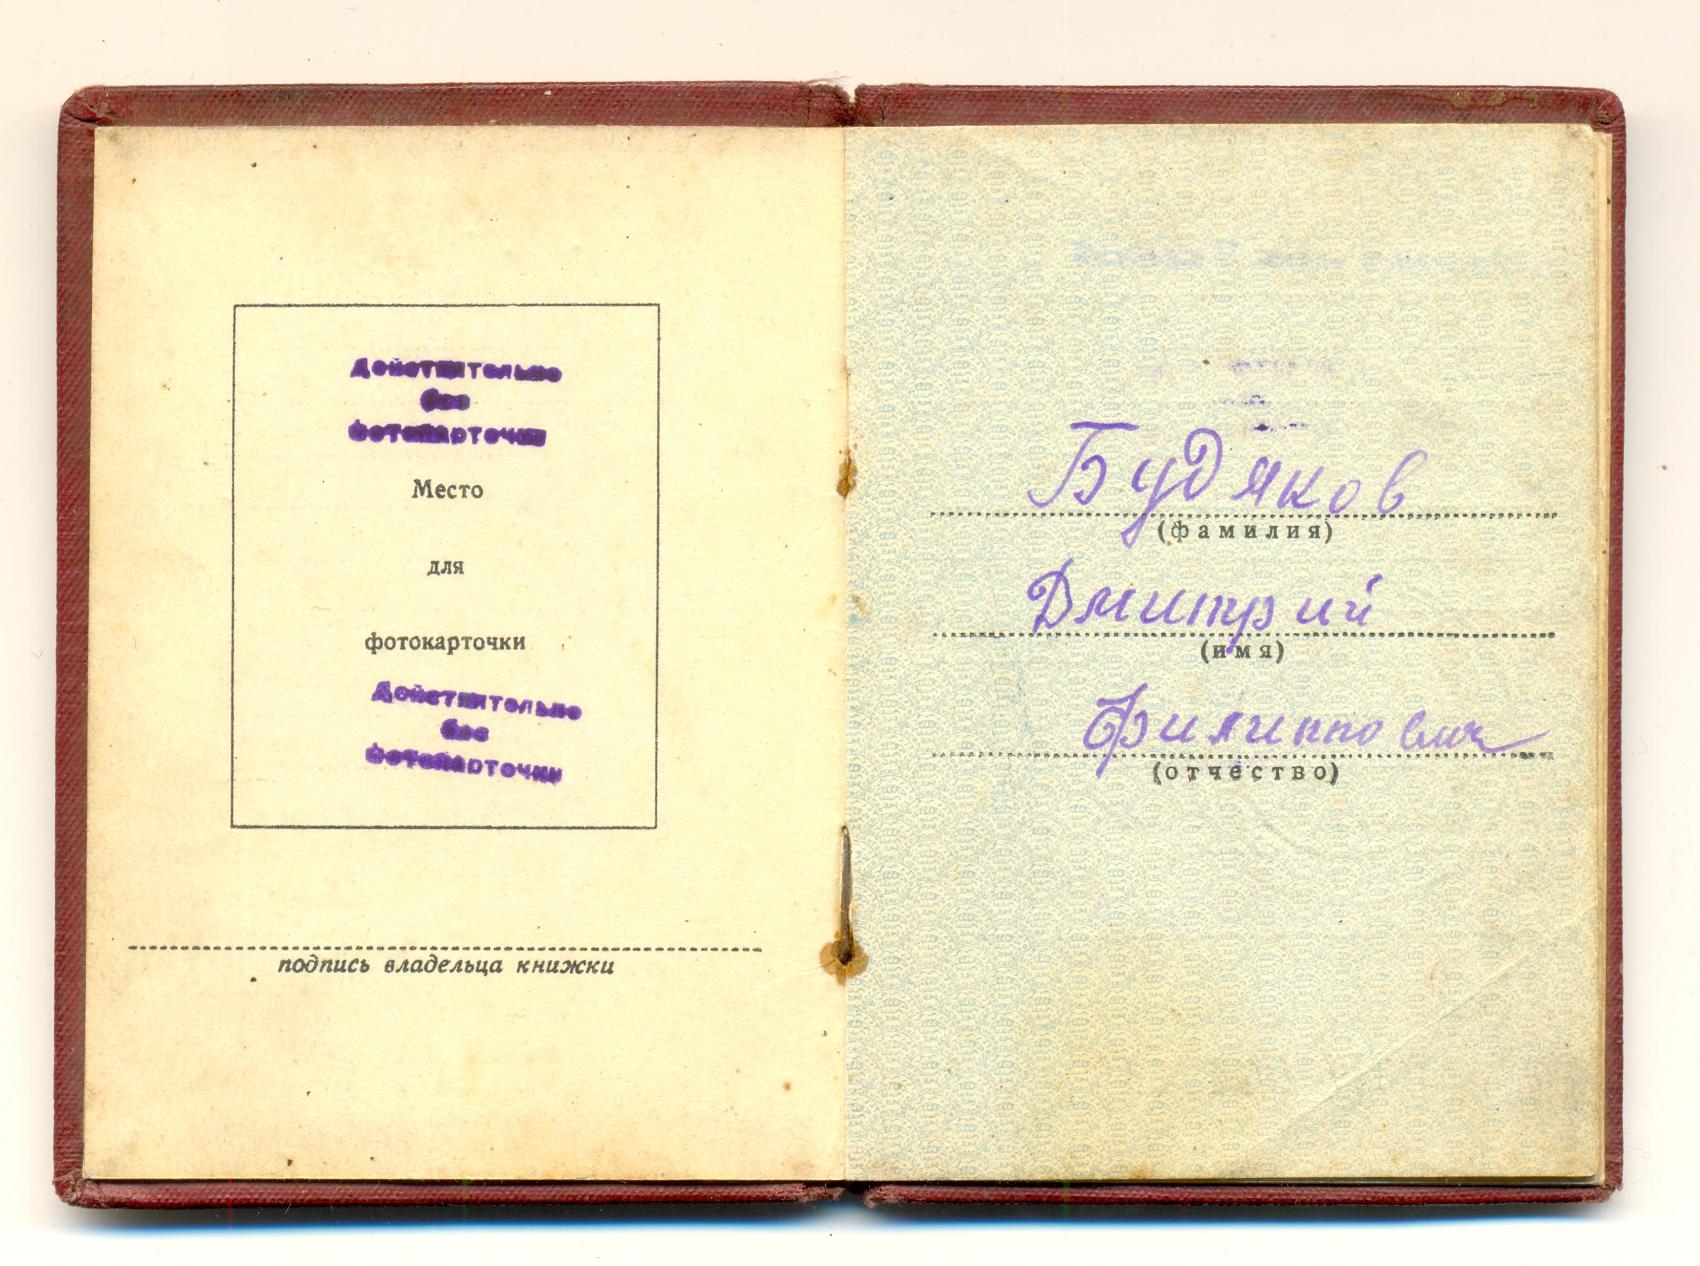 Действительно
без
фотокарточки
Место
для
фотокарточки
Действительно
без
фотокарточки
подпись владельца книжки
Будяков
(фамилия)
Дмитрий
(имя)
Филиппович
(отчество)